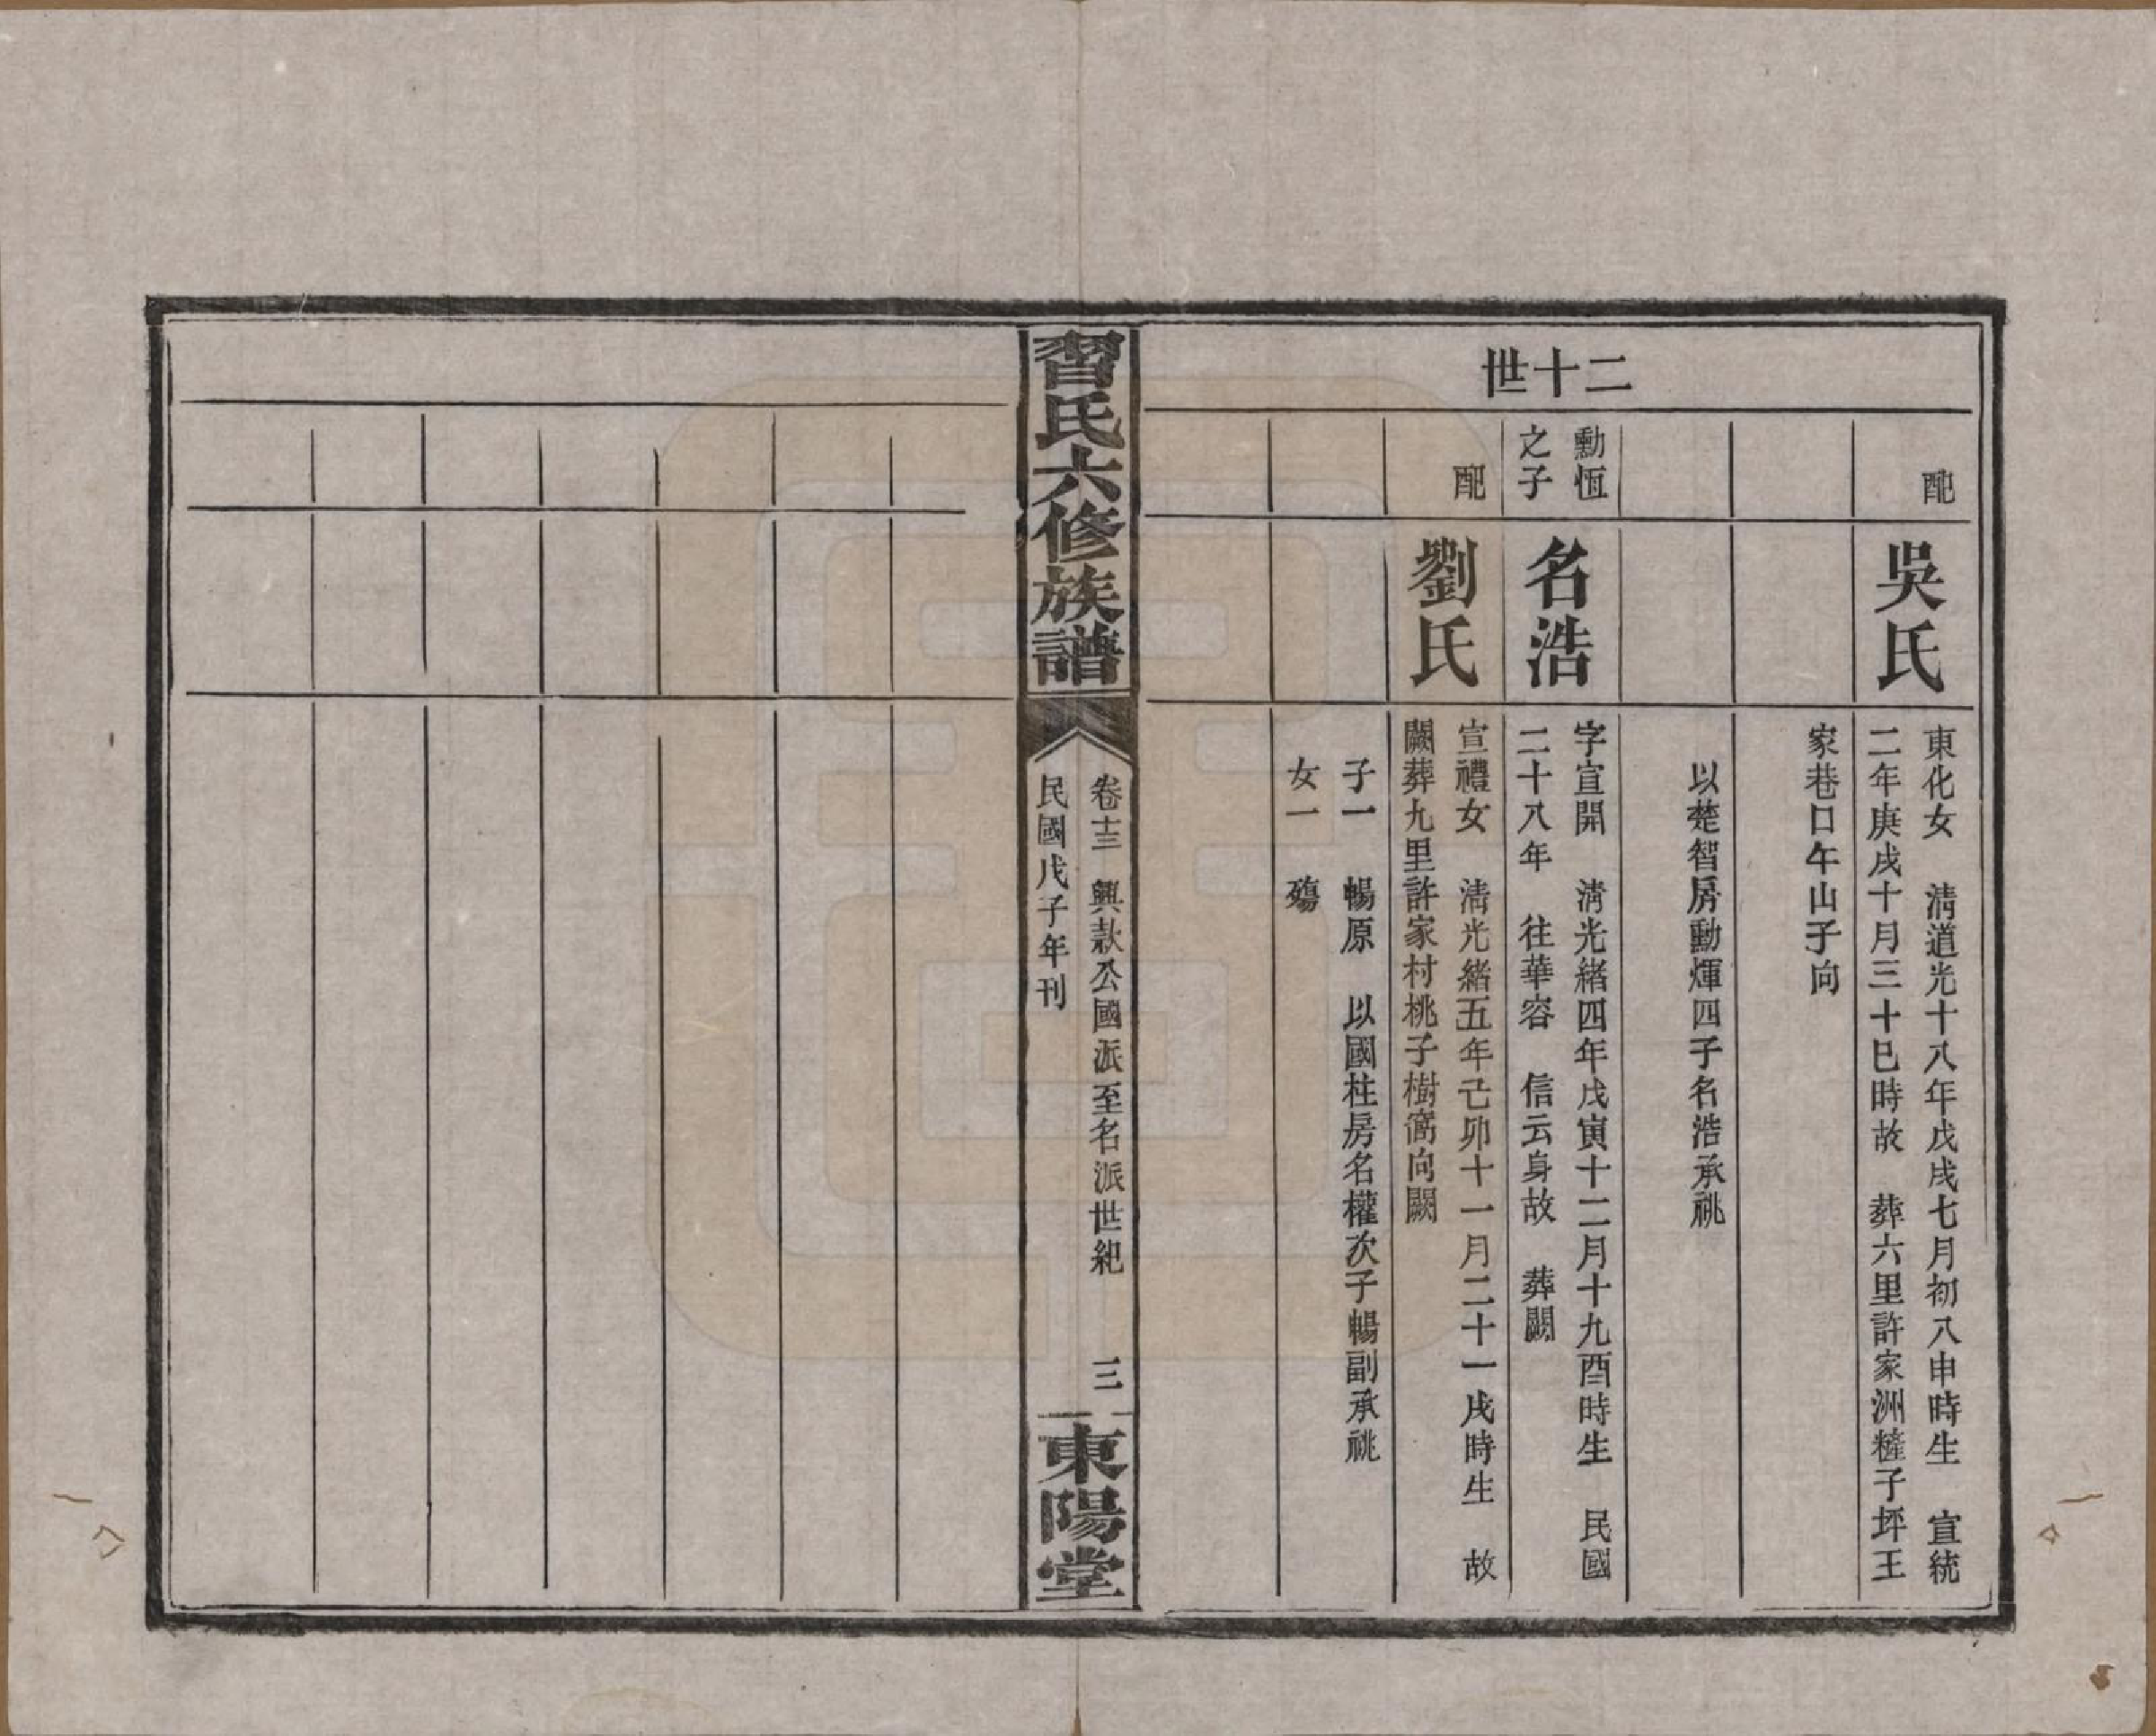 二十世
配
吳氏
東化女　淸道光十八年戊戌七月初八申時生　宣統
二年庚戌十月三十巳時故　葬六里許家洲糙子坪王
家巷口午山子向
以楚智房勳煇四子名浩承祧
勳恆
之子
名浩
字宣開　淸光緒四年戊寅十二月十九酉時生　民國
二十八年　往華容　信云身故　葬闕
配
劉氏
宣禮女　淸光緒五年己卯十一月二十一戌時生　故
闕葬九里許家村桃子樹窩向闕
子一　暢原　以國柱房名權次子暢副承祧
女一　殤
習氏六修族譜
卷十三　興款公國派至名派世紀　三
民國戊子年刊
東陽堂